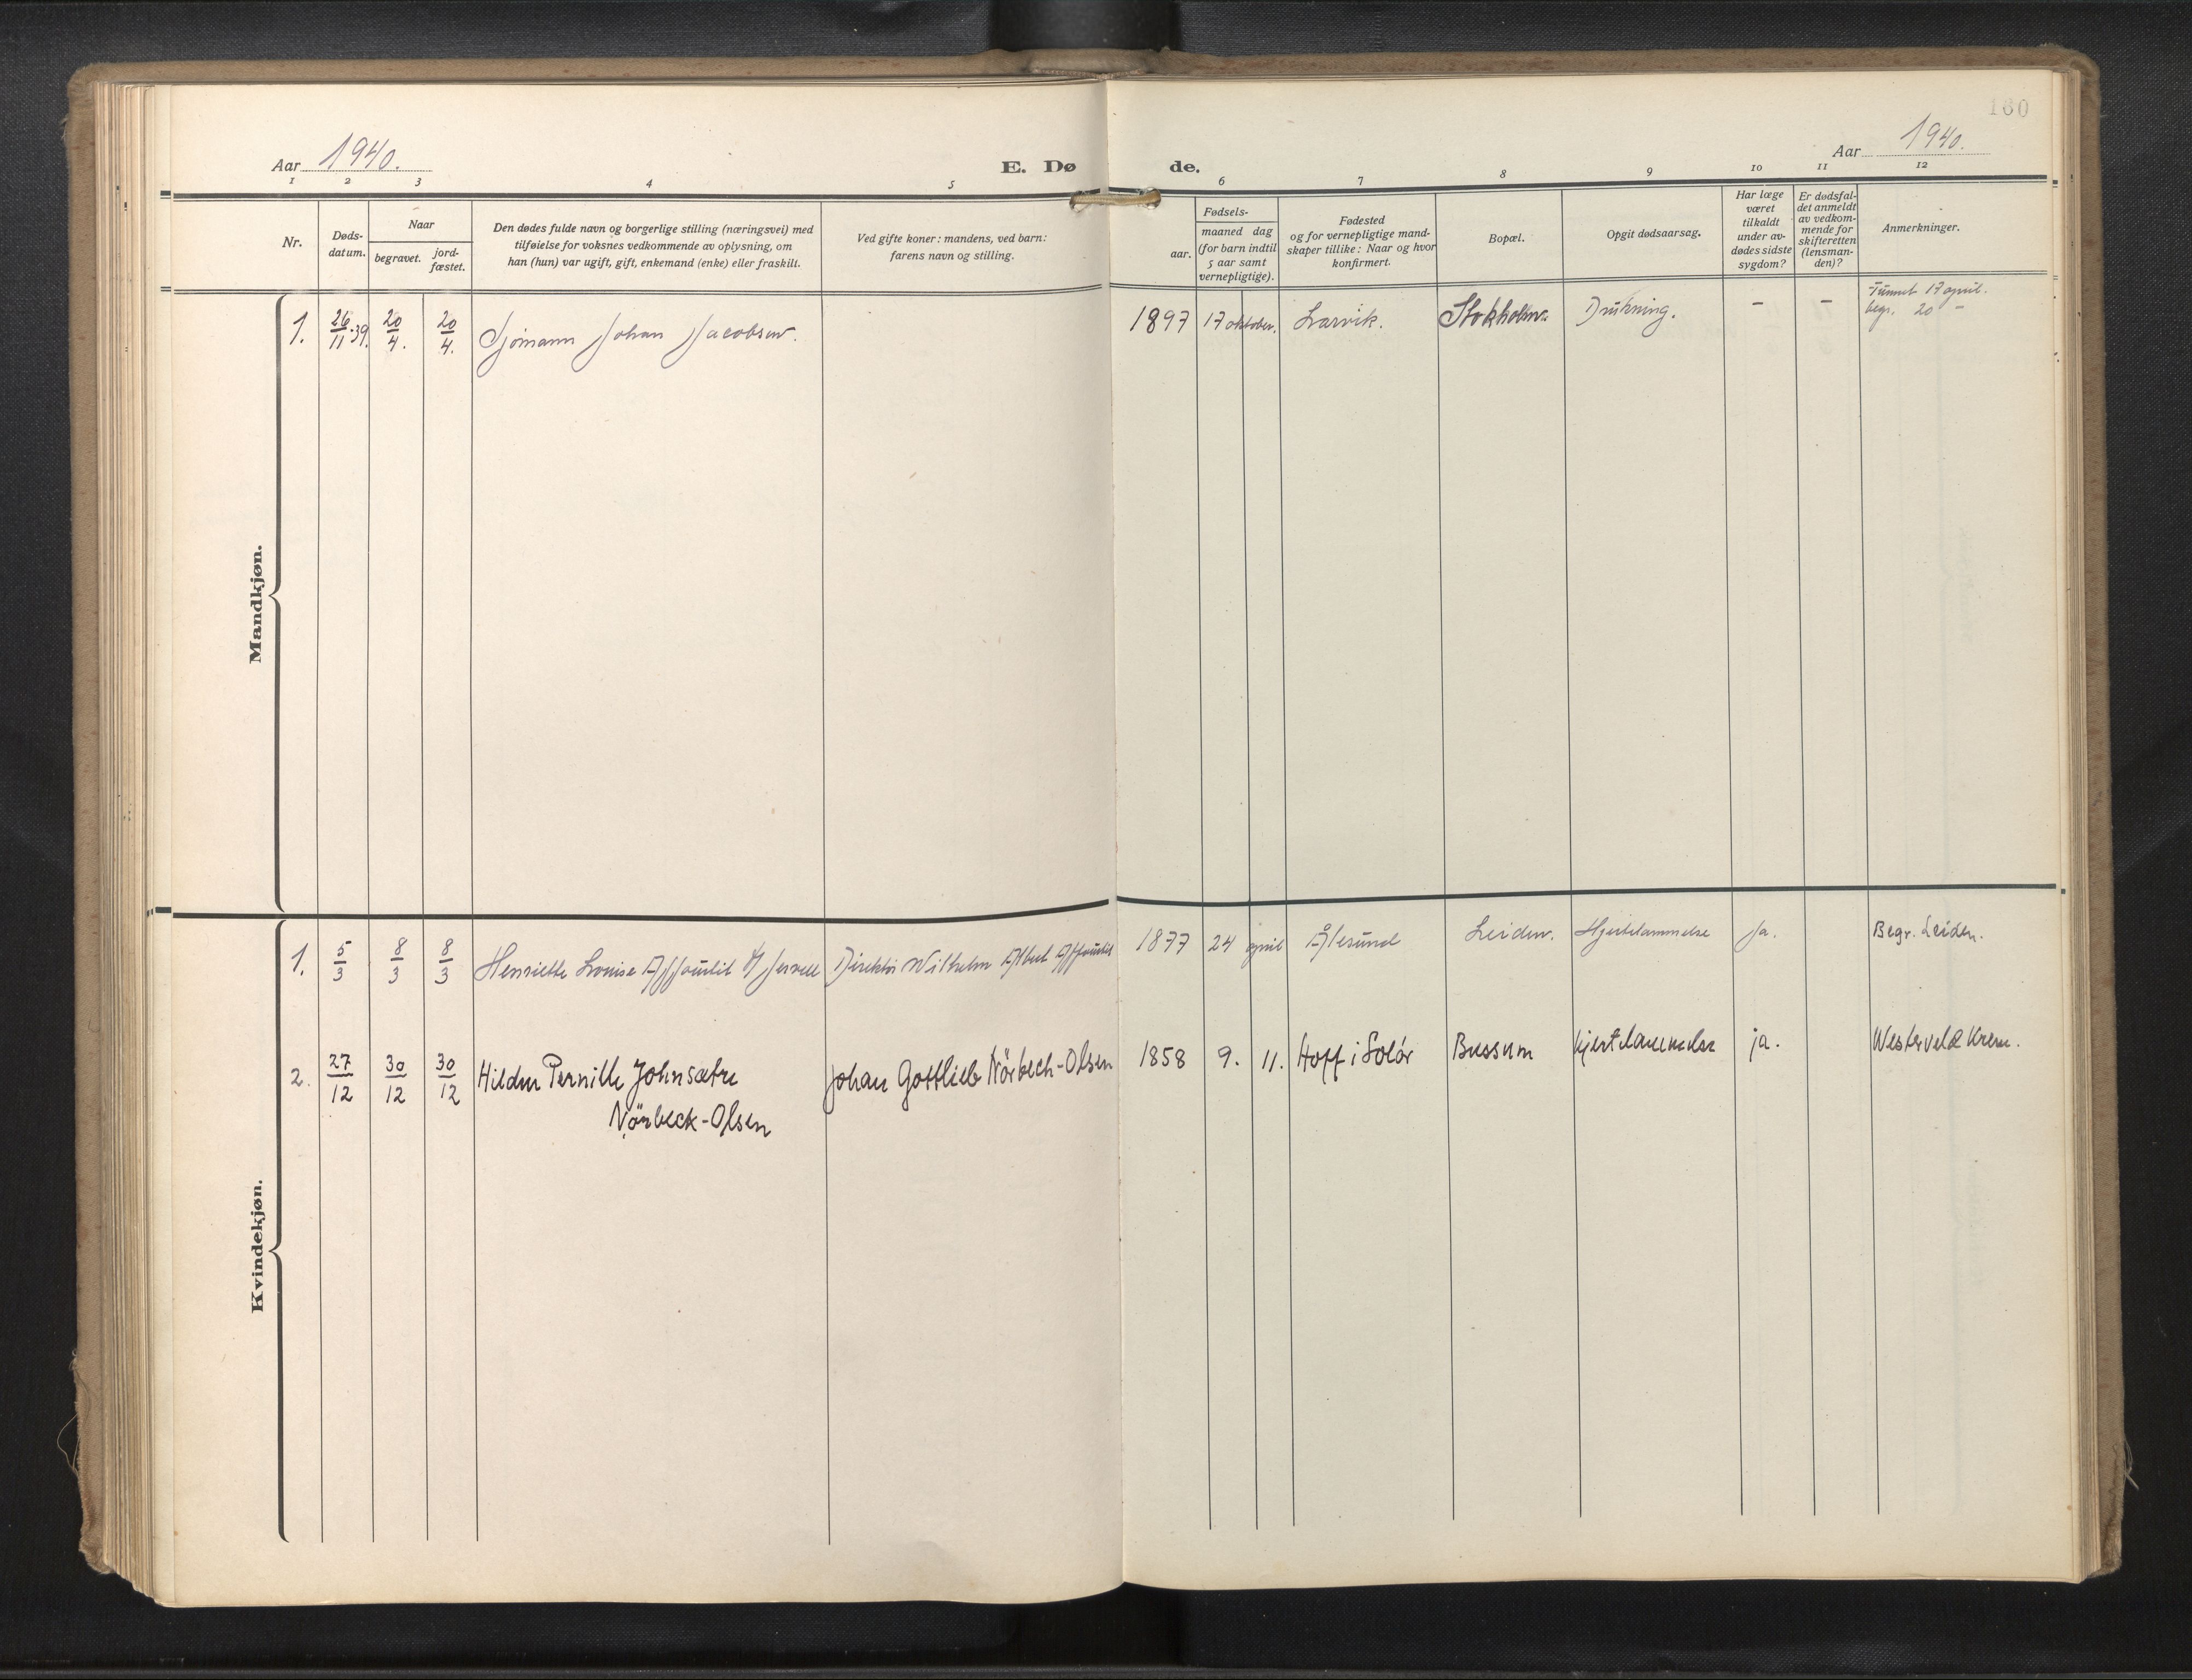 160
Aar 1940.
E. Dø de.
Aar 1940.
1 2 3 4 5 6 7 8 9 10 11 12
Nr.
Døds-
datum.
Naar
begravet.
jord-
fæstet.
Den dødes fulde navn og borgerlige stilling (næringsvei) med
tilføielse for voksnes vedkommende av oplysning, om
han (hun) var ugift, gift, enkemand (enke) eller fraskilt.
Ved gifte koner: mandens, ved barn:
farens navn og stilling.
Fødsels-
aar.
maaned dag
(for barn indtil
5 aar samt
vernepligtige).
Fødested
og for vernepligtige mand-
skaper tillike: Naar og hvor
konfirmert.
Bopæl.
Opgit dødsaarsag.
Har læge
været
tilkaldt
under av-
dødes sidste
sygdom?
Er dødsfal-
det anmeldt
av vedkom-
mende for
skifteretten
(lensman-
den)?
Anmerkninger.
Mandkjøn.
1. 26/11.39. 20/4. 20/4. Sjömann Johan Jacobsen. 1897 17 oktober. Larvik. Stokholm. Drukning. – – Funnet 17 april.
begr. 20 –
Kvindekjøn.
1. 5/3 8/3 8/3 Henriette Louise f Jervell Direktör Wilhelm 1877 24 april Ålesund Leiden. Hjertelammelse Ja. Begr. Leiden.
2. 27/12 30/12 30/12 Hildur Pernille Johnsætre Johan Gottlieb Nörbech-Olsen 1858 9. 11. Hoff i Solör Bussum hjertelammelse ja. Westerveld Krem.
Nörbeck-Olsen